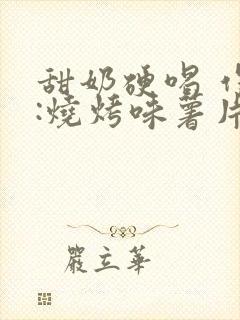 甜奶硬喝
:燒烤味薯片
嚴立華